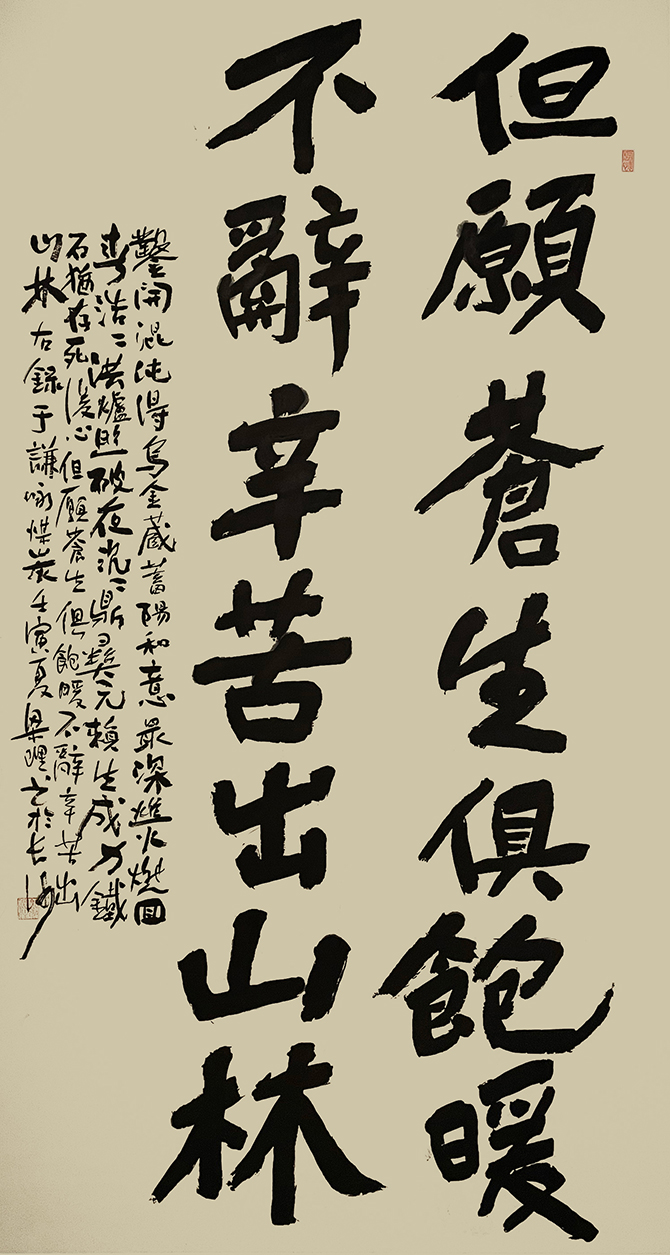 但願蒼生俱飽暖
不辭辛苦出山林
鑿開混沌得烏金藏蓄陽和意最深爝火燃回
春浩〻洪爐照破夜沉〻鼎彝元賴生成力鐵
石猶存死後心但願蒼生俱飽暖不辭辛苦出
山林右錄于謙咏煤炭壬寅夏梁